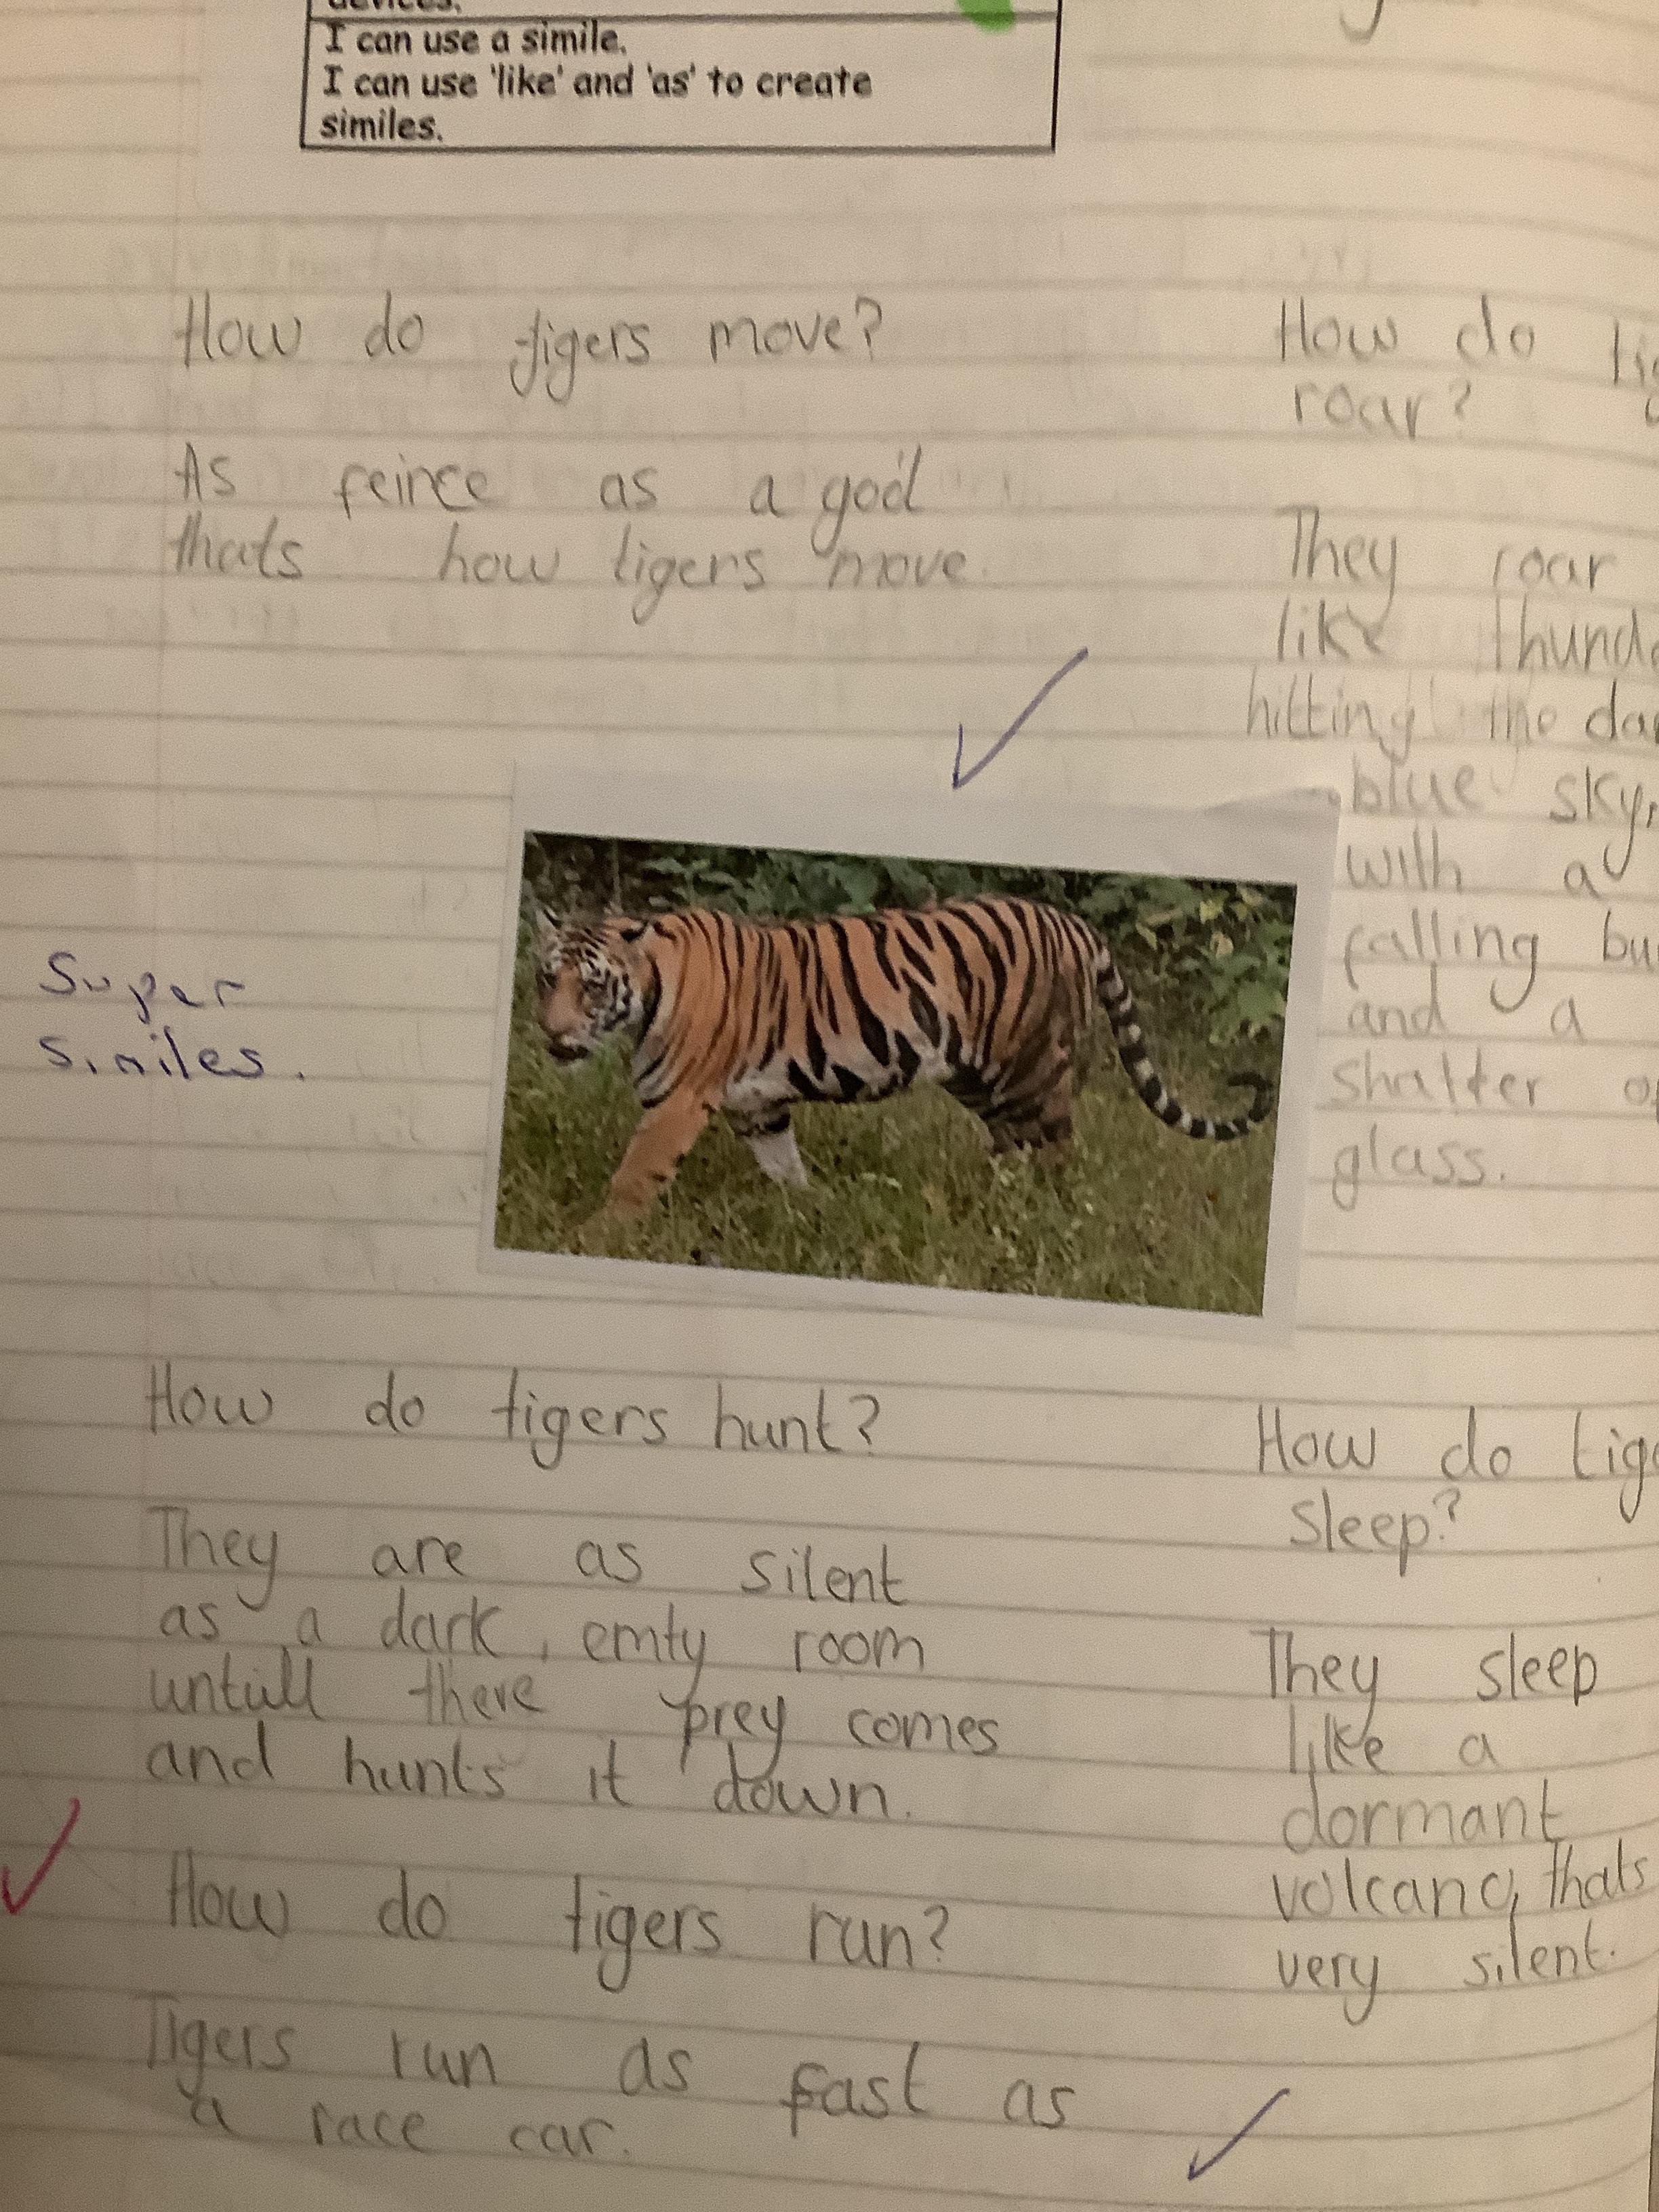 I can use a simile.
I can use 'like' and 'as' to create
similes.
How do tigers move?
As feirce as a god
thats how tigers move.
Super
similes.
How do tigers hunt?
They are as silent
as a dark, emty room
untill there prey comes
and hunts it down.
How do tigers run?
Tigers run as fast as
a race car.
How do
roar?
They roar
like
hitting the
blue sky,
with a
falling
and a
shatter
glass.
How do
sleep?
They sleep
like a
dormant
volcano, thats
very silent.